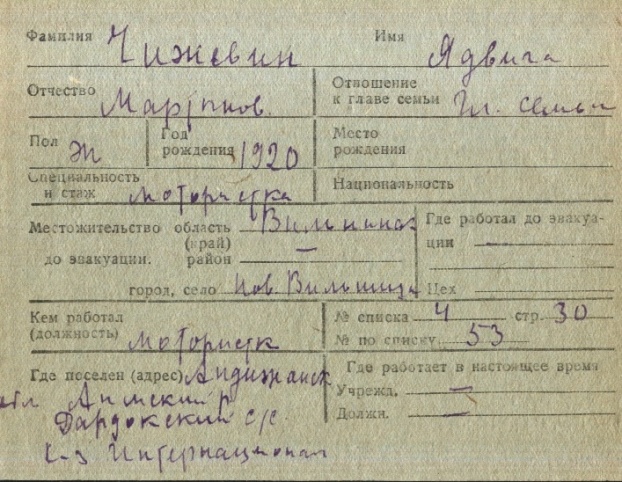 Фамилия Чижевин Имя Ядвига
Отчество Мартинов. Отношение к главе семьи Гл. семьи
Пол Ж Год рождения 1920 Место рождения
Специальность и стаж мотористка Национальность
Местожительство область (край) Вильнинск Где работал до эвакуации —
до эвакуации: район —
город, село Нов. Вильница Цех
Кем работал (должность) мотористк № списка 4 стр. 30
№ по списку 53
Где поселен (адрес) Андижанск Где работает в настоящее время
Учрежд. —
обл Аимский р Должн. —
Дардокский с/с.
к-з Интернационал